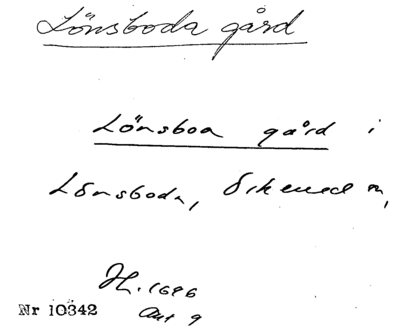 Lönsboda gård
Lönsboa gård i
Lönsboda, Örkened sn,
H. 1696
Nr 10342